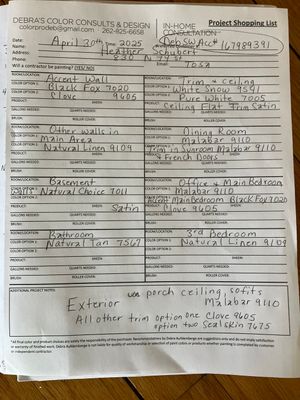 DEBRA'S COLOR CONSULTS & DESIGN
colorprodebi@gmail.com 262-825-6658
IN-HOME CONSULTATION
Project Shopping List
Deb SW Acc# 167989391
Date: April 30th, 2025
Name: Heather Schubert
Address: 830 N 79 St
Phone: Tosa
Will a contractor be painting? YES NO
ROOM/LOCATION: Accent Wall
COLOR OPTION 1: Black Fox 7020
COLOR OPTION 2: Clove 9605
PRODUCT: SHEEN:
GALLONS NEEDED: QUARTS NEEDED:
BRUSH: ROLLER COVER:
ROOM/LOCATION: Trim & Ceiling
COLOR OPTION 1: White Snow 9541
COLOR OPTION 2: Pure White 7005
PRODUCT: Ceiling Flat Trim Satin
GALLONS NEEDED: QUARTS NEEDED:
BRUSH: ROLLER COVER:
ROOM/LOCATION: Other walls in Main Area
COLOR OPTION 1: Natural Linen 9109
COLOR OPTION 2:
PRODUCT: SHEEN:
GALLONS NEEDED: QUARTS NEEDED:
BRUSH: ROLLER COVER:
ROOM/LOCATION: Dining Room
COLOR OPTION 1: Malabar 9110
Trim in Sunroom Malabar 9110
& French Doors
GALLONS NEEDED: QUARTS NEEDED:
BRUSH: ROLLER COVER:
ROOM/LOCATION: Basement
Walls Natural Choice 7011
COLOR OPTION 2:
PRODUCT: SHEEN: Satin
GALLONS NEEDED: QUARTS NEEDED:
BRUSH: ROLLER COVER:
ROOM/LOCATION: Office & Main Bedroom
COLOR OPTION 1: Malabar 9110
Accent Main Bedroom Black Fox 7020
Clove 9605
GALLONS NEEDED: QUARTS NEEDED:
BRUSH: ROLLER COVER:
ROOM/LOCATION: Bathroom
COLOR OPTION 1: Natural Tan 7567
COLOR OPTION 2:
PRODUCT: SHEEN:
GALLONS NEEDED: QUARTS NEEDED:
BRUSH: ROLLER COVER:
ROOM/LOCATION: 3rd Bedroom
COLOR OPTION 1: Natural Linen 9109
COLOR OPTION 2:
PRODUCT: SHEEN:
GALLONS NEEDED: QUARTS NEEDED:
BRUSH: ROLLER COVER:
ADDITIONAL PROJECT NOTES:
porch ceiling, sofits
Exterior Malabar 9110
All other trim option one Clove 9605
option two Sealskin 7675
*All final color and product choices are solely the responsibility of the purchaser. Recommendations by Debra Auldenberge are suggestions only and do not imply satisfaction
or warranty of finished work. Debra Auldenberge is not liable for quality of workmanship or selection of paint colors or products whether painting is completed by customer
or independent contractor.